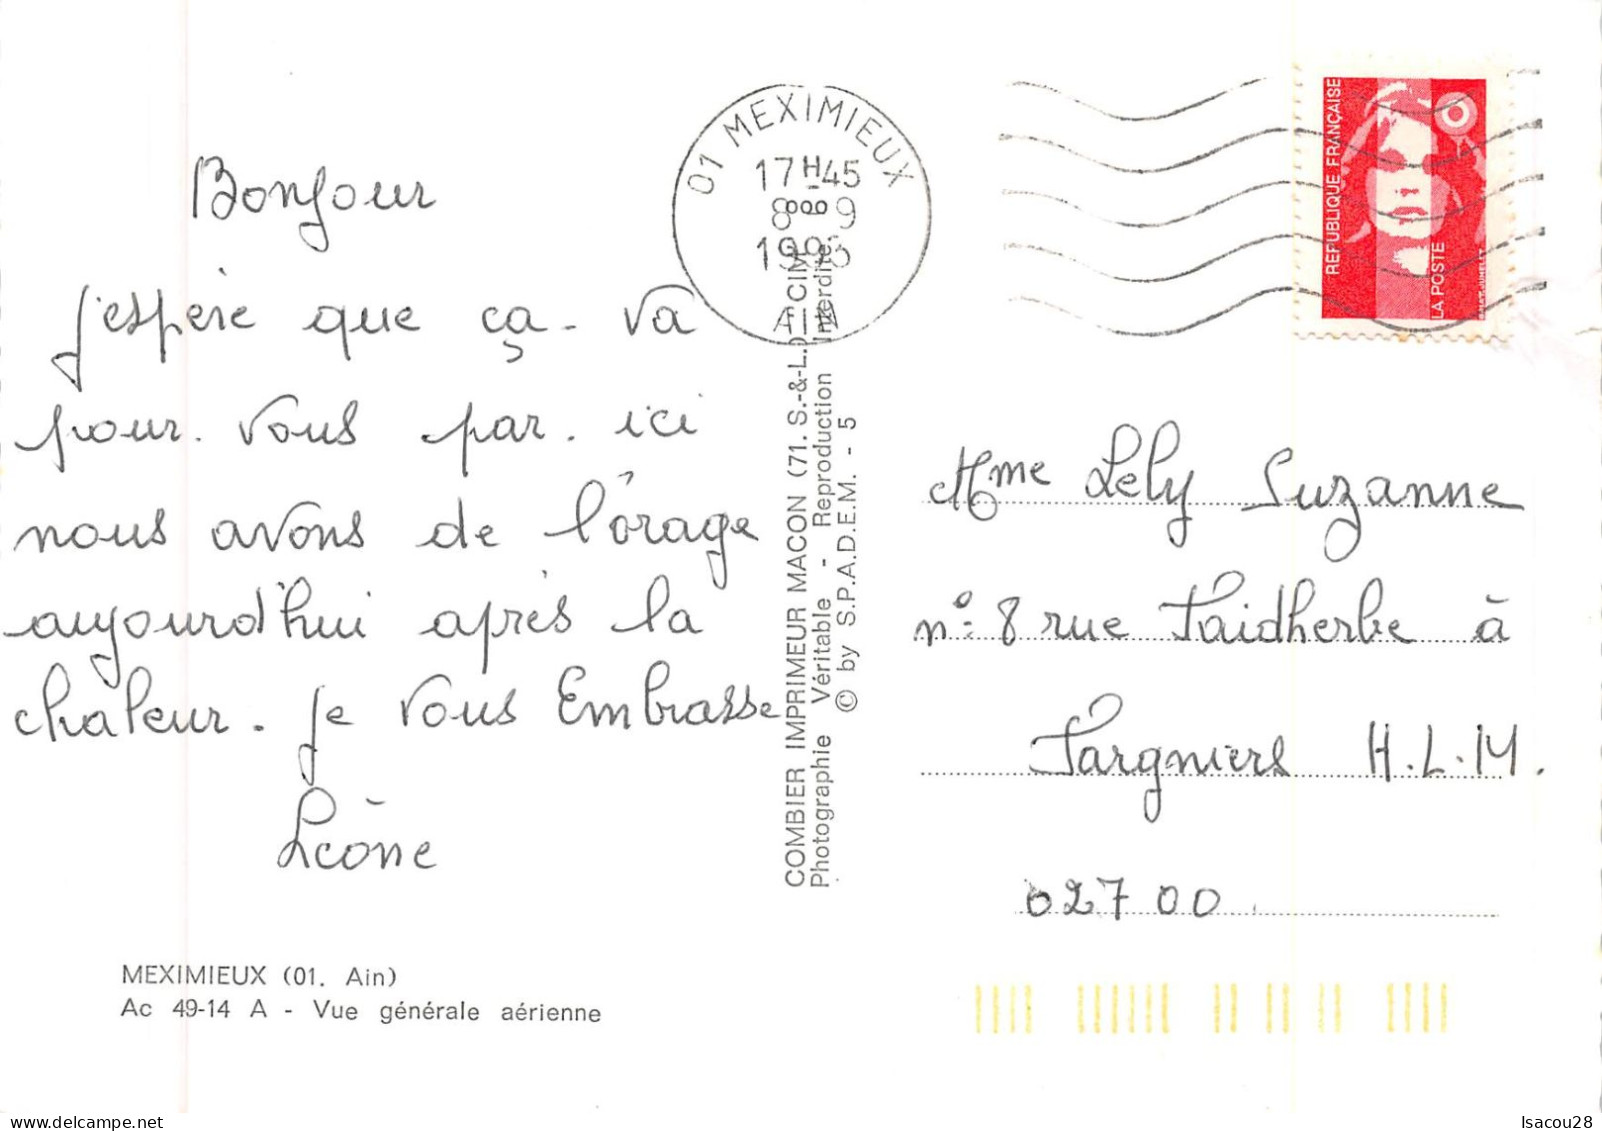 Bonjour
j'espère que ça - va
pour. vous par. ici
nous avons de l'orage
aujourd'hui après la
chaleur. je vous Embrasse
Léone
MEXIMIEUX (01. Ain)
Ac 49-14 A - Vue générale aérienne
01 MEXIMIEUX
17H45
8 9
AIN
COMBIER IMPRIMEUR MACON (71. S.-&-L.)
Photographie Véritable - Reproduction Interdite
© by S.P.A.D.E.M. - 5
REPUBLIQUE FRANÇAISE
LA POSTE
Mme Lely Suzanne
n° 8 rue Faidherbe à
Fargniers H.L.M.
02700
Isacou28